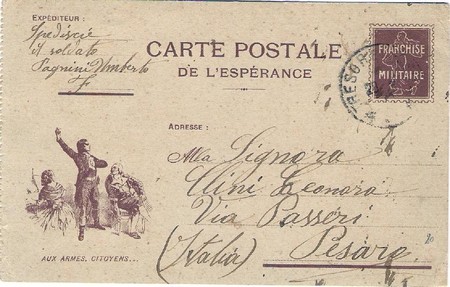 EXPÉDITEUR :
Spedisce
il soldato
Pagnini Umberto
CARTE POSTALE
DE L'ESPÉRANCE
FRANCHISE
MILITAIRE
TRESOR
ADRESSE :
Alla Signora
Clini Leonora
Via Passeri
(Italia) Pesaro
AUX ARMES, CITOYENS...